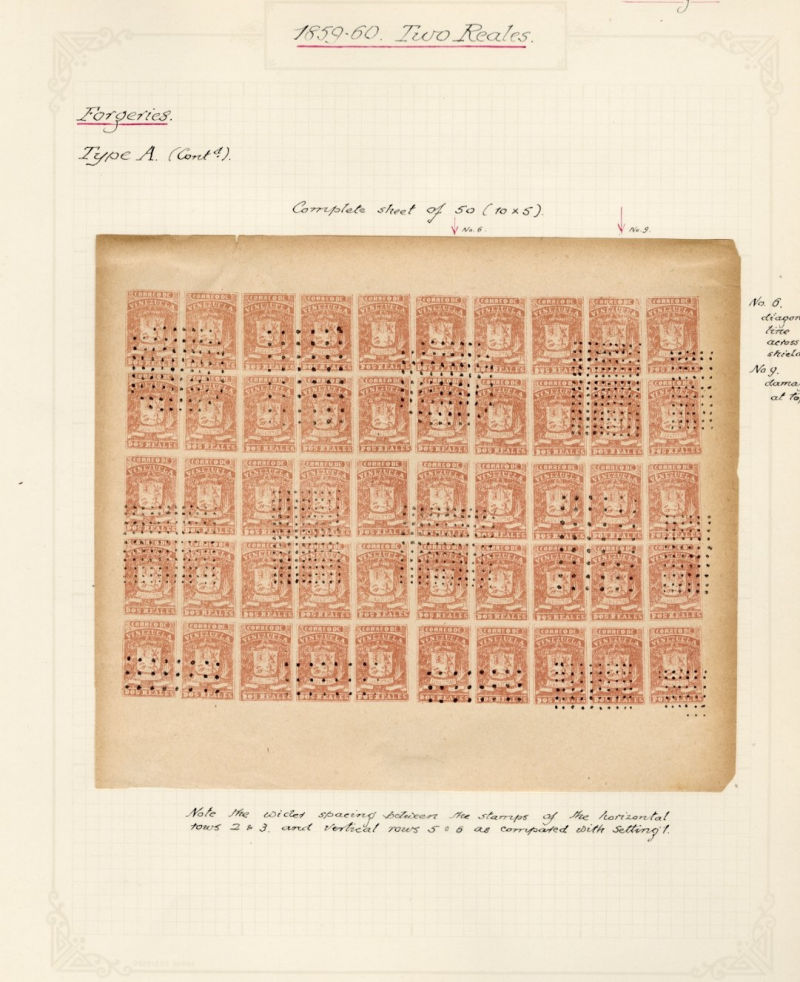 1859-60. Two Reales.
Forgeries.
Type A. (Contd.).
Complete sheet of 50 (10 x 5).
No. 6.
No. 9.
No. 6.
diagon
line
across
shield
No 9.
dama
at to
CORREO DE
VENEZUELA
DOS REALES
Note the wider spacing between the stamps of the horizontal
rows 2 & 3. and vertical rows 5 & 6 as compared with Setting 1.